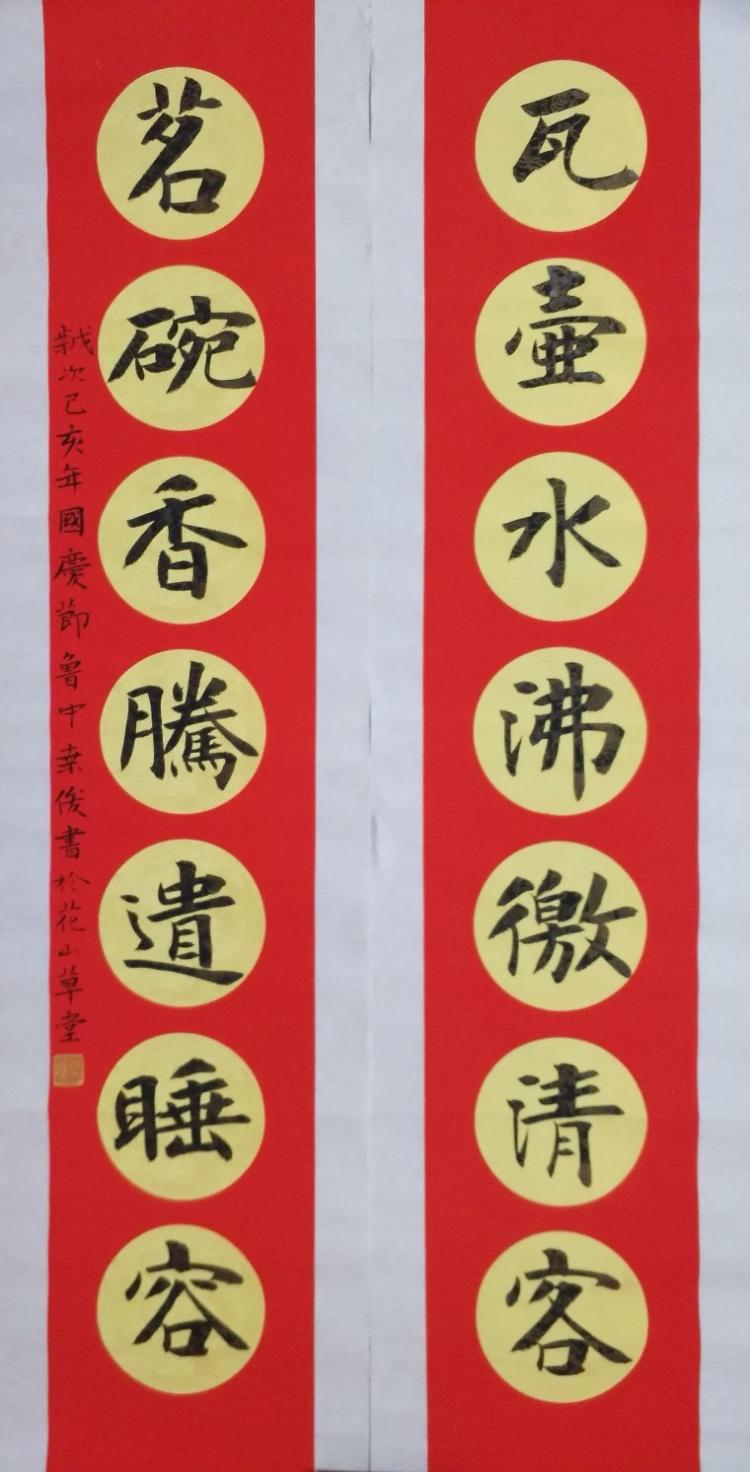 瓦壺水沸徼清客
茗碗香騰遺睡容
歲次己亥年國慶節魯中桒俊書於花山草堂